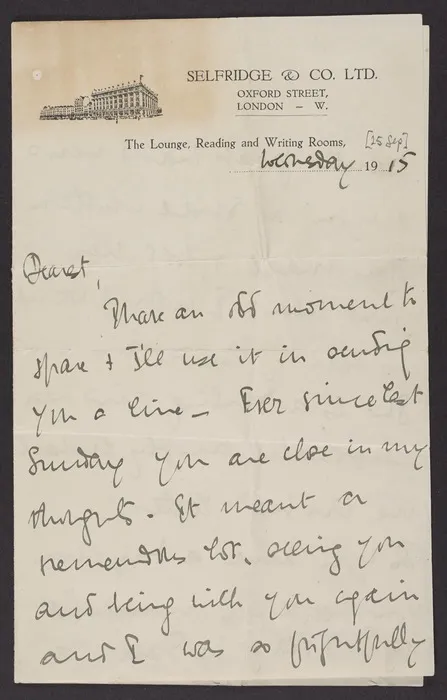 SELFRIDGE & CO. LTD.
OXFORD STREET,
LONDON – W.
The Lounge, Reading and Writing Rooms,
[25 Sep]
Wednesday 1915
Dearest,
I have an odd moment to
spare & I'll use it in sending
you a line – Ever since last
Sunday you are close in my
thoughts. It meant a
tremendous lot, seeing you
and being with you again
and I was so frightfully